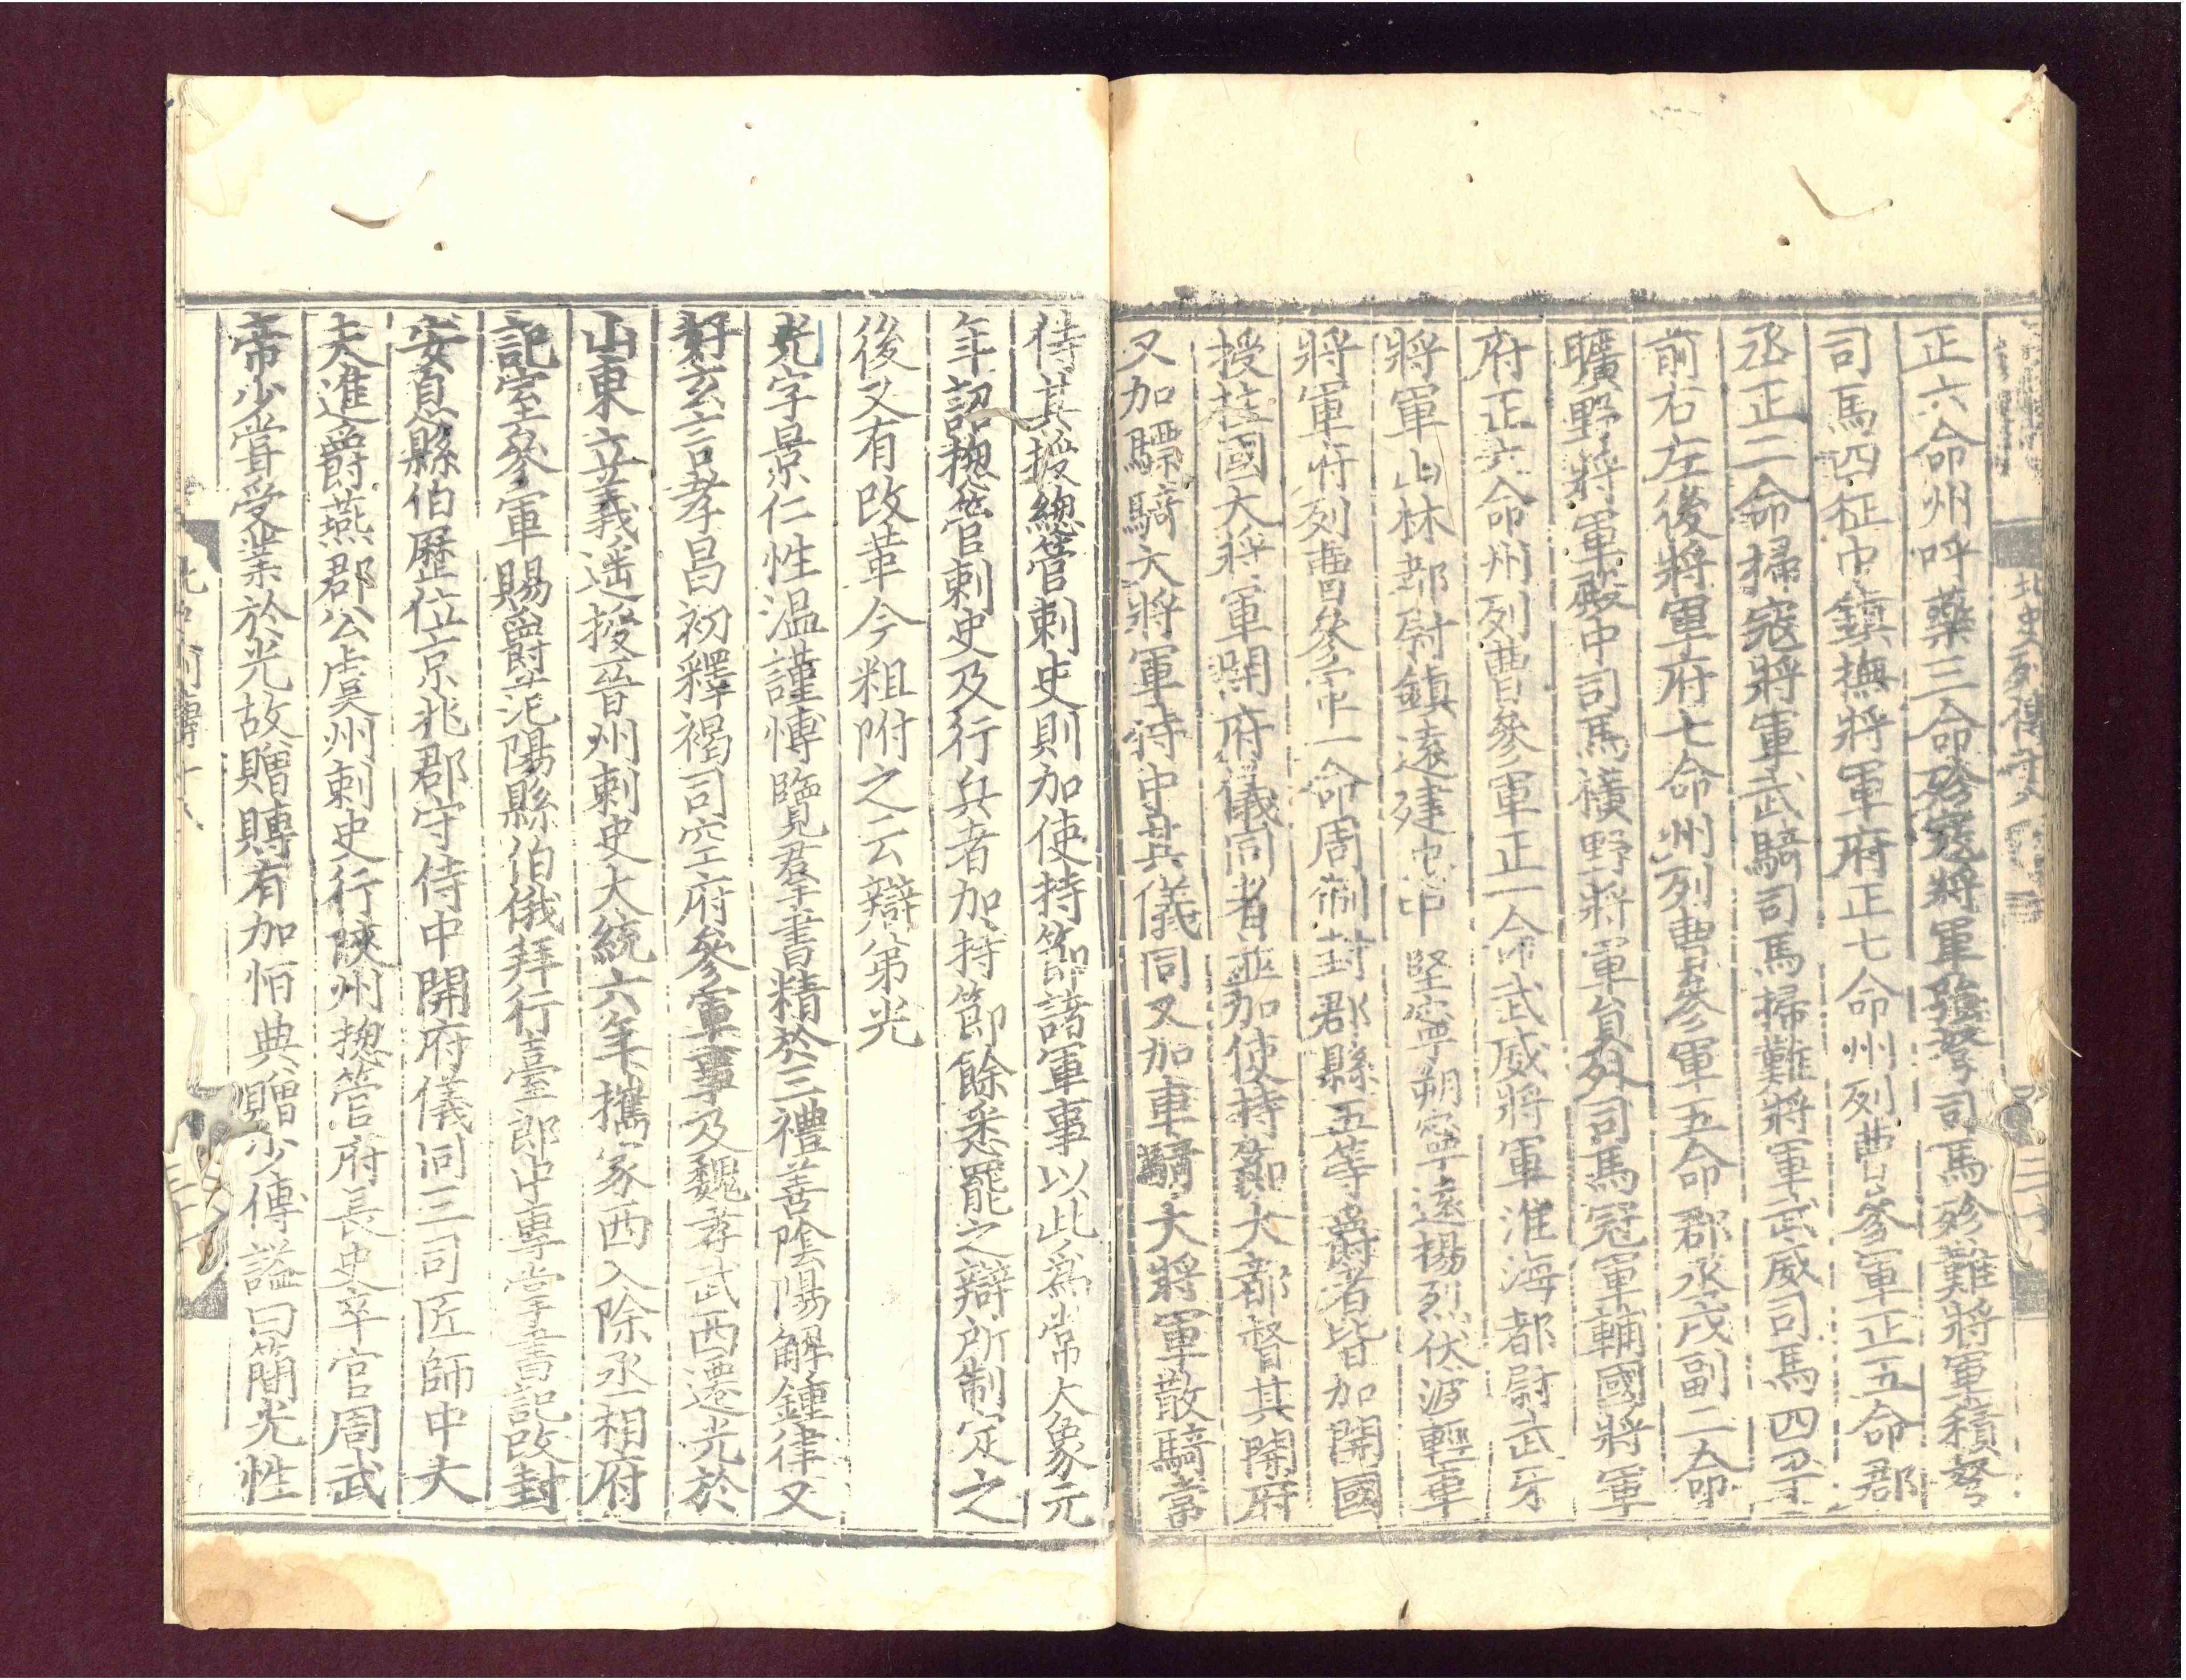 北史列傳十八
正六命州呼藥三命殄寇將軍強弩司馬殄難將軍積弩
司馬四征中鎮撫將軍府正七命州列曹參軍正五命郡
丞正二命掃寇將軍武騎司馬掃難將軍武威司馬四命
前右左後將軍府七命州列曹參軍五命郡丞戍副二命
曠野將軍殿中司馬橫野將軍貟外司馬冠軍輔國將軍
府正六命州列曹參軍正一命武威將軍淮海都尉武牙
將軍山林都尉鎮遠建忠中堅寧朔寧遠揚烈伏波輕車
將軍府列曹參軍一命周制封郡縣五等爵者皆加開國
授柱國大將軍開府儀同者並加使持節大都督其開府
又加驃騎大將軍侍中其儀同又加車騎大將軍散騎常
侍其授總管刺史則加使持節諸軍事以此爲常大象元
年詔揔管刺史及行兵者加持節餘悉罷之辯所制定之
後又有改革今粗附之云辯弟光
光字景仁性温謹博覽羣書精於三禮善陰陽解鍾律又
好玄言孝昌初釋褐司空府參軍事及魏孝武西遷光於
山東立義遥授晉州刺史大統六年攜家西入除丞相府
記室參軍賜爵范陽縣伯俄拜行臺郎中專掌書記改封
安息縣伯歷位京兆郡守侍中開府儀同三司匠師中大
夫進爵燕郡公虞州刺史行陝州揔管府長史卒官周武
帝少嘗受業於光故贈賻有加恒典贈少傅謚曰簡光性
北史列傳十八